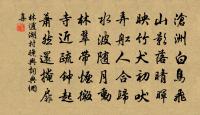 滄洲白鳥飛
山影落晴暉
映竹犬初吠
弄船人合歸
水波隨月動
林翠帶煙微
寺近疏鐘起
蕭然還掩扉
林逋湖村晚興詞典網